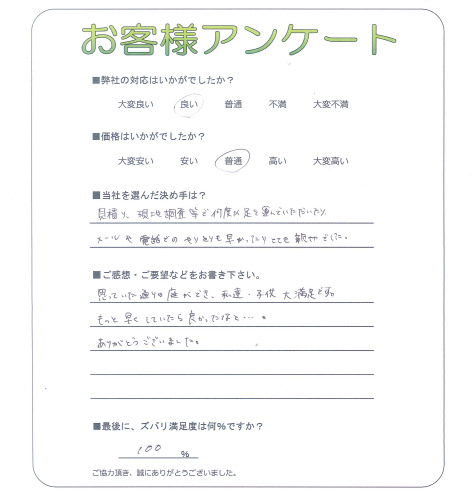 お客様アンケート
■弊社の対応はいかがでしたか？
大変良い 良い 普通 不満 大変不満
■価格はいかがでしたか？
大変安い 安い 普通 高い 大変高い
■当社を選んだ決め手は？
見積り、現地調査等で何度も足を運んでいただいたり、
メールや電話でのやりとりも早かったりとても親切でした。
■ご感想・ご要望などをお書き下さい。
思っていた通りの庭ができ、私達・子供大満足です
もっと早くしていたら良かったなと…。
ありがとうございました。
■最後に、ズバリ満足度は何％ですか？
100 ％
ご協力頂き、誠にありがとうございました。